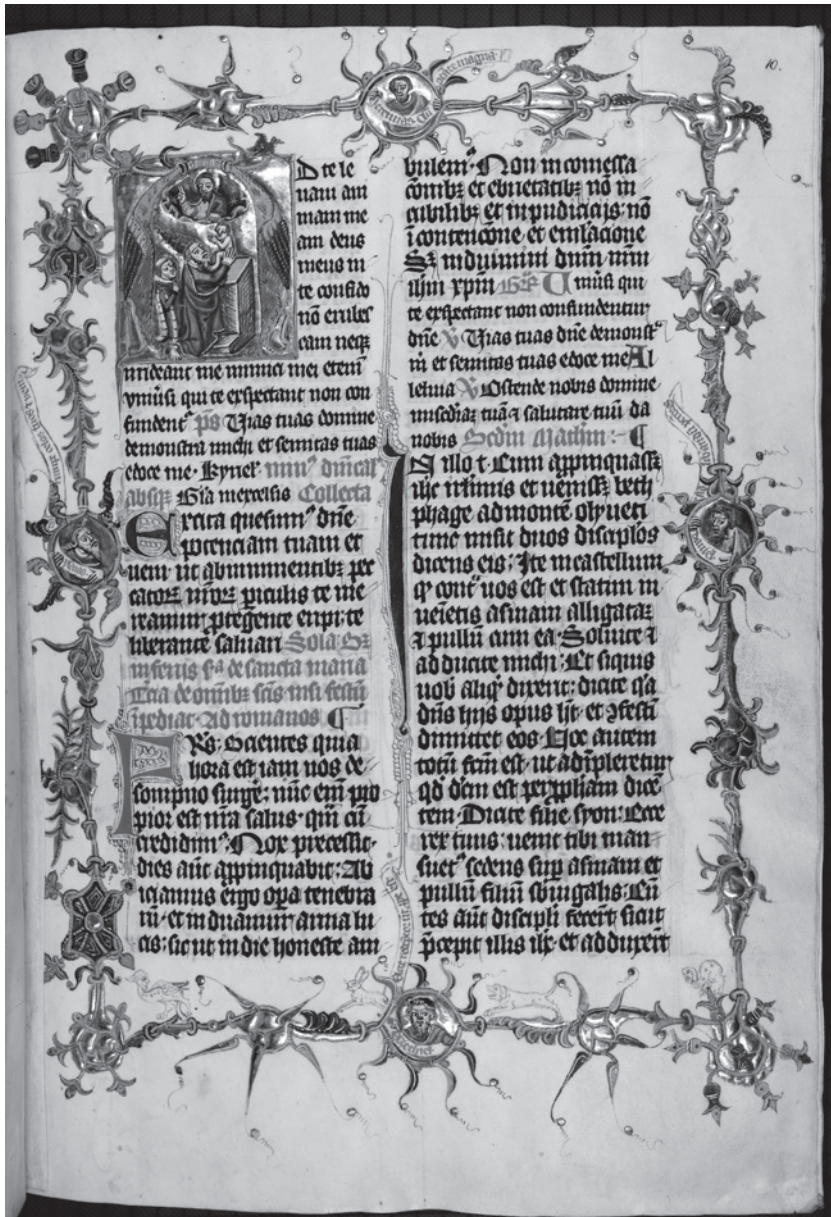 10.
D te le
uaui ani
mam me
am deus
meus in
te confido
nō erubes
cam neqʒ
irrideant me inimici mei etenī
vniūsi qui te exspectant non con
fundentʳ pˢ Vias tuas domine
demonstra michi et semitas tuas
edoce me · kyriel̕ · dn̄ical̕
absqʒ Gl̄a in excelsis Collecta
Excita quesumˀ dn̄e
potenciam tuam et
veni ut ab imminentibʒ pec
catoꝝ nr̄oꝝ p̱iculis te me
reamur p̱tegente eripi: te
liberante saluari Sola
in feriis sꝫa de sancta maria
Tc̄ia de om̄ibʒ sc̄is nisi festū
īpediat · Ad romanos
FRˢ: Scientes quia
hora est iam nos de
sompno surge: nūc em̄ pro
pior est nr̄a salus · qm̄ cū
credidimˀ Nox precessit ·
dies aūt appinquabit: Ab
iciamus ergo oꝑa tenebra
rū · et induamur arma lu
cis: sic ut in die honeste am
bulem̄ · Non in comessa
cōnibʒ et ebrietatibʒ nō in
cubilibʒ et inpudiciciis · nō
ī contencōne et emlacione
Sʒ induimini dn̄m nr̄m
ih̄m xp̄m Vniūsi qui
te exspectant non confundentur
dn̄e ℣ Vias tuas dn̄e demonstʳᵃ
m̄ et semitas tuas edoce me Al
leluia ℣ Ostende nobis domine
misc̄diaꝫ tuā ⁊ salutare tuū da
nobis Scdm̄ Mathm̄ :-
IN illo t̄ · Cum appinquassʒ
ih̄c ih̄rlimis et uenissʒ beth
phage ad montē olyueti
tunc misit duos disciplōs
dicens eis: Ite in castellum
qᵈ contᵃ uos est et statim in
uenietis asinam alligataꝫ
⁊ pullū cum ea · Soluite ⁊
adducite michi: Et siquis
uob̄ aliqᵈ dixerit: dicite qᵃ
dn̄s hiis opus h̄t · et ꝯfestī
dimittet eos · Hoc autem
totū fcm̄ est · ut adīpleretur
qd̄ dcm̄ est per ꝓph̄am dicē
tem · Dicite filie syon: Ecce
rex tuus: uenit tibi man
suetˀ sedens suꝑ asinam et
pullū filiū sbiugalis: Eū
tes aūt discipl̄i fecert̄ sicut
p̄cepit illis ih̄c · et adduxert̄